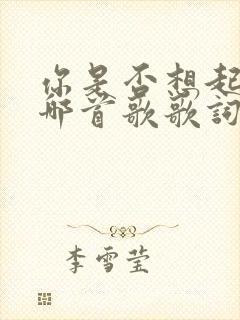 你是否想起
那首歌歌詞
李雪莹